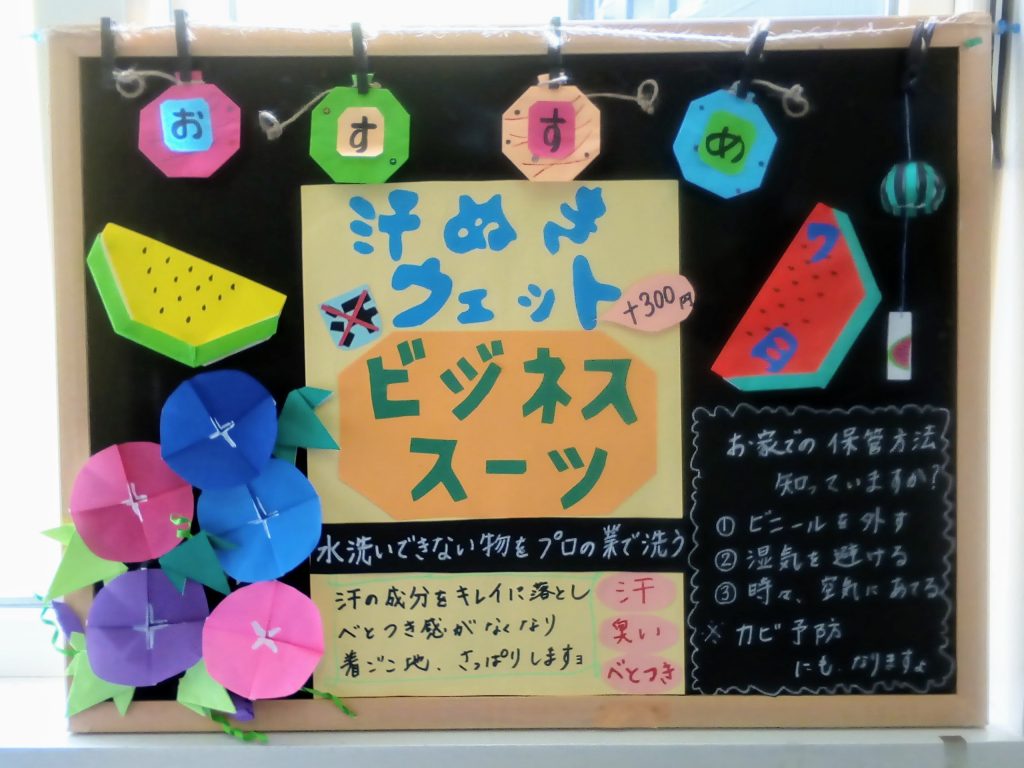 おすすめ
汗ぬき
ウェット
+300円
ビジネス
スーツ
水洗いできない物をプロの業で洗う
汗の成分をキレイに落とし
べとつき感がなくなり
着ごこ地、さっぱりしますョ
汗
臭い
べとつき
お家での保管方法
知っていますか?
① ビニールを外す
② 湿気を避ける
③ 時々、空気にあてる
※ カビ予防
にも、なりますょ